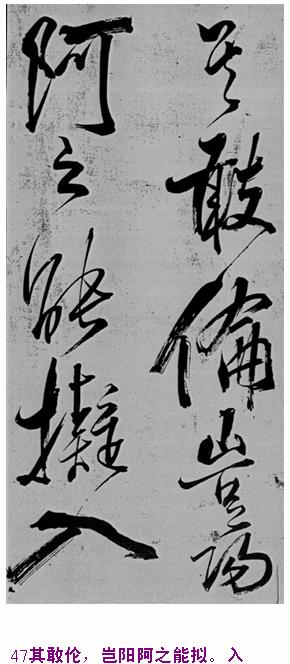 其敢倫豈陽
阿之能擬入
47其敢伦，岂阳阿之能拟。入